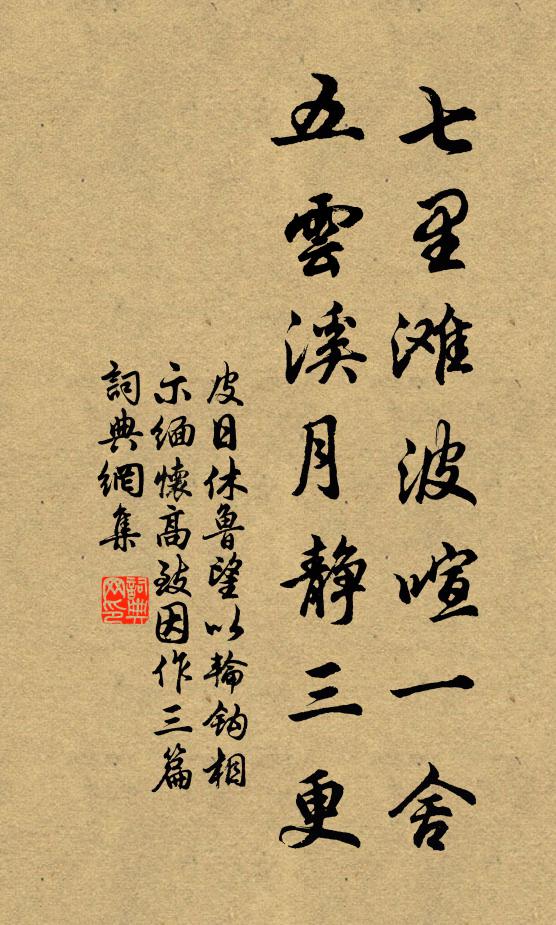 七里滩波喧一舍
五雲溪月靜三更
皮日休魯望以輪鈎相
示緬懷高致因作三篇
詞典網集
詞典
网印